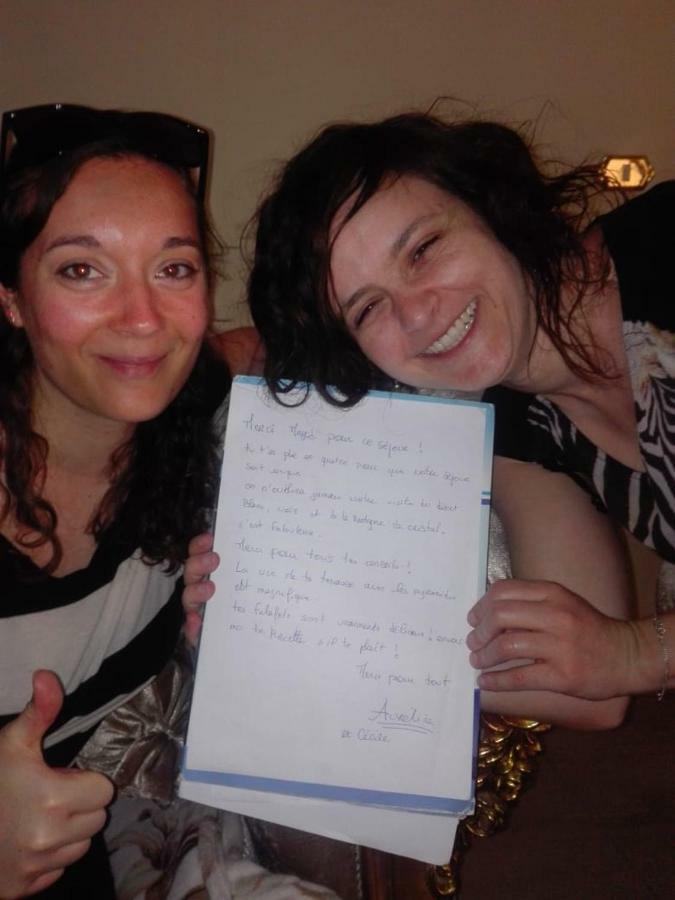 Merci Magd pour ce séjour !
tu t'es plié en quatre pour que notre séjour
soit unique
on n'oubliera jamais notre visite du désert
Blanc, noir et de la montagne de cristal.
c'est fabuleux.
Merci pour tous tes conseils !
La vue de ta terrasse avec les pyramides
est magnifique.
tes falafels sont vraiments délicieux ! envoie
moi ta Recette s'il te plaît !
Merci pour tout
Aurélie
et Cécile